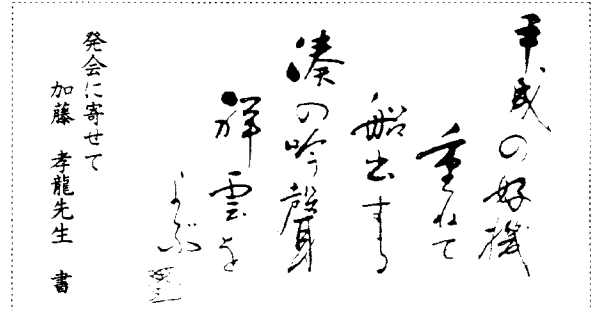 平成の好機
重ねて
船出する
湊の吟聲
祥雲を
よぶ
発会に寄せて
加藤 孝龍先生 書